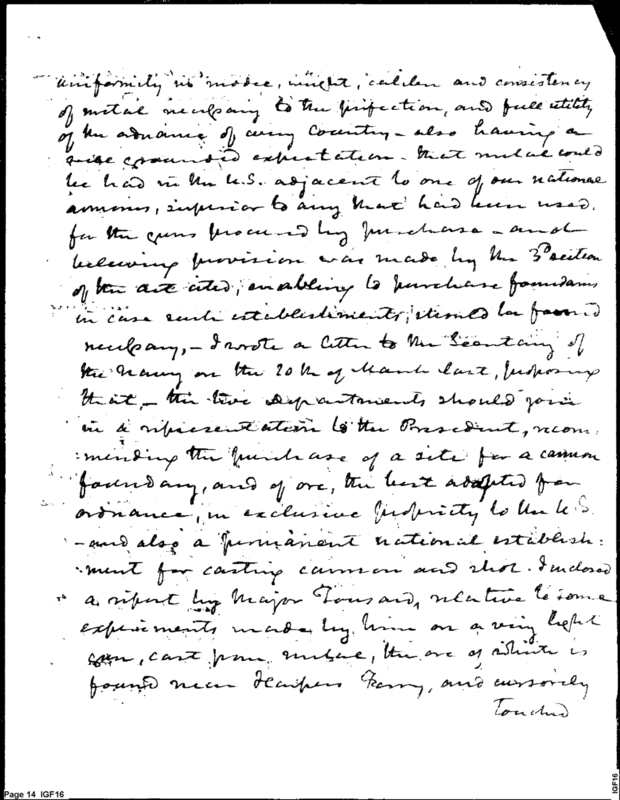 uniformity in model, weight, caliber and consistency
of metal necessary to the perfection, and full utility
of the ordnance of every Country – also having a
well grounded expectation – that metal could
be had in the U.S. adjacent to one of our national
armories, superior to any that had been used.
for the guns procured by purchase – and
believing provision was made by the 3d section
of the act cited, enabling to purchase foundaries
in case such establishments, should be found
necessary, – I wrote a letter to the Secretary of
the Navy on the 20th of March last, proposing
that, – the two Departments should join
in a representation to the President, recom:
:mending the purchase of a site for a cannon
foundary, and of ore, the best adapted for
ordnance, in exclusive propriety to the U.S.
– and also a permanent national establish:
:ment for casting cannon and shot. I enclosed
a report by Major Tousard, relative to some
experiments made by him on a very light
gun, cast from metal, the ore of which is
found near Harpers Ferry, and cursorily
Touched
Page 14 IGF16
IGF16